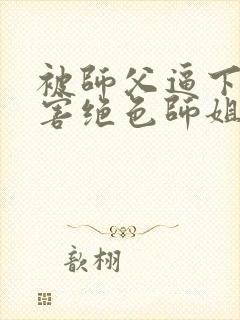 被師父逼下
害绝色師姐
歆栩